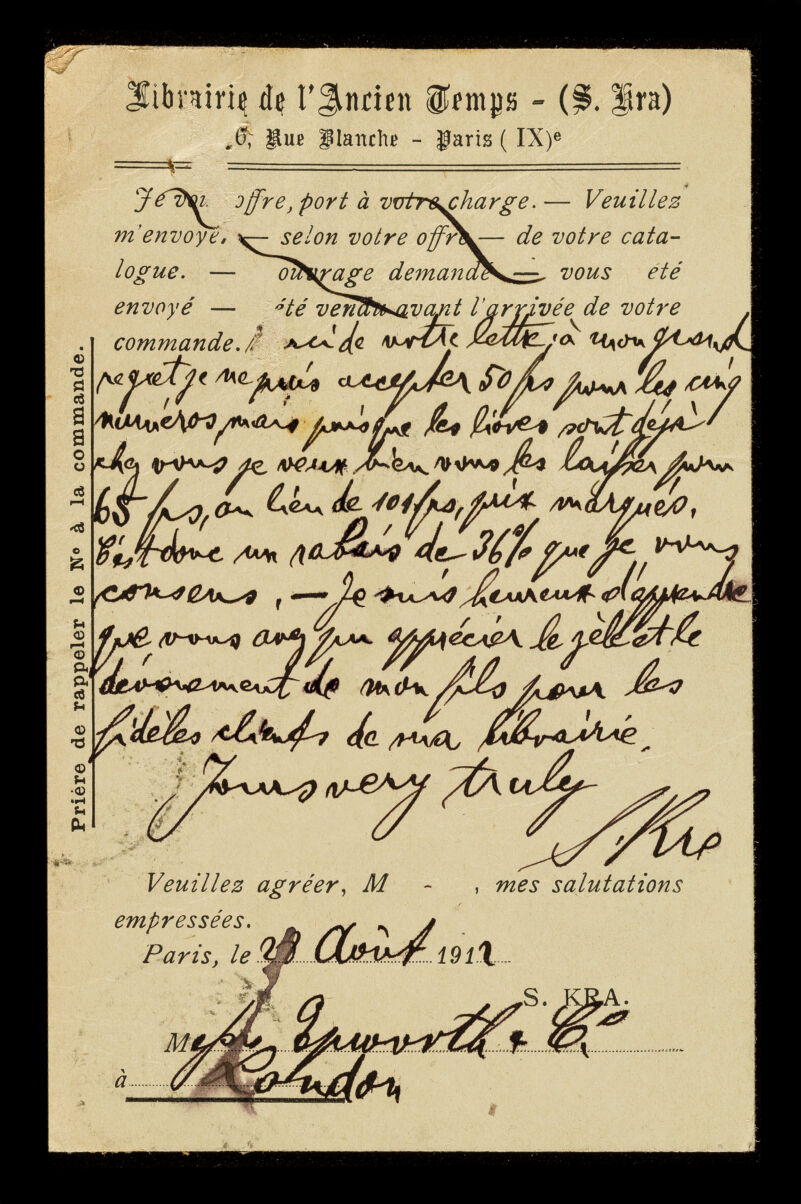 Librairie de l'Ancien Temps - (S. Kra)
6, Rue Blanche - Paris ( IX)e
Je offre, port à votre charge. — Veuillez
m'envoye. — selon votre offre — de votre cata-
logue. — ouvrage demandé — vous été
envoyé — été vendu avant l'arrivée de votre
commande. de votre lettre, à mon grand
regret je ne puis accepter 50 frs pour les cinq
numéros, mais puisque les livres sont déjà
chez vous je veux bien vous les laisser pour
65 frs, au lieu de 101 frs, prix marqués.
C'est donc un rabais de 36% que je vous
consens. — Je suis heureux d'apprendre
que vous avez pu apprécier le zèle et le
dévouement de mon fils pour les
fidèles clients de ma librairie.
Yours very truly
S. Kra
Veuillez agréer, M - , mes salutations
empressées.
Paris, le 28 Août 1912
S. KRA.
Messrs Epworth & Co
à London
Prière de rappeler le No à la commande.